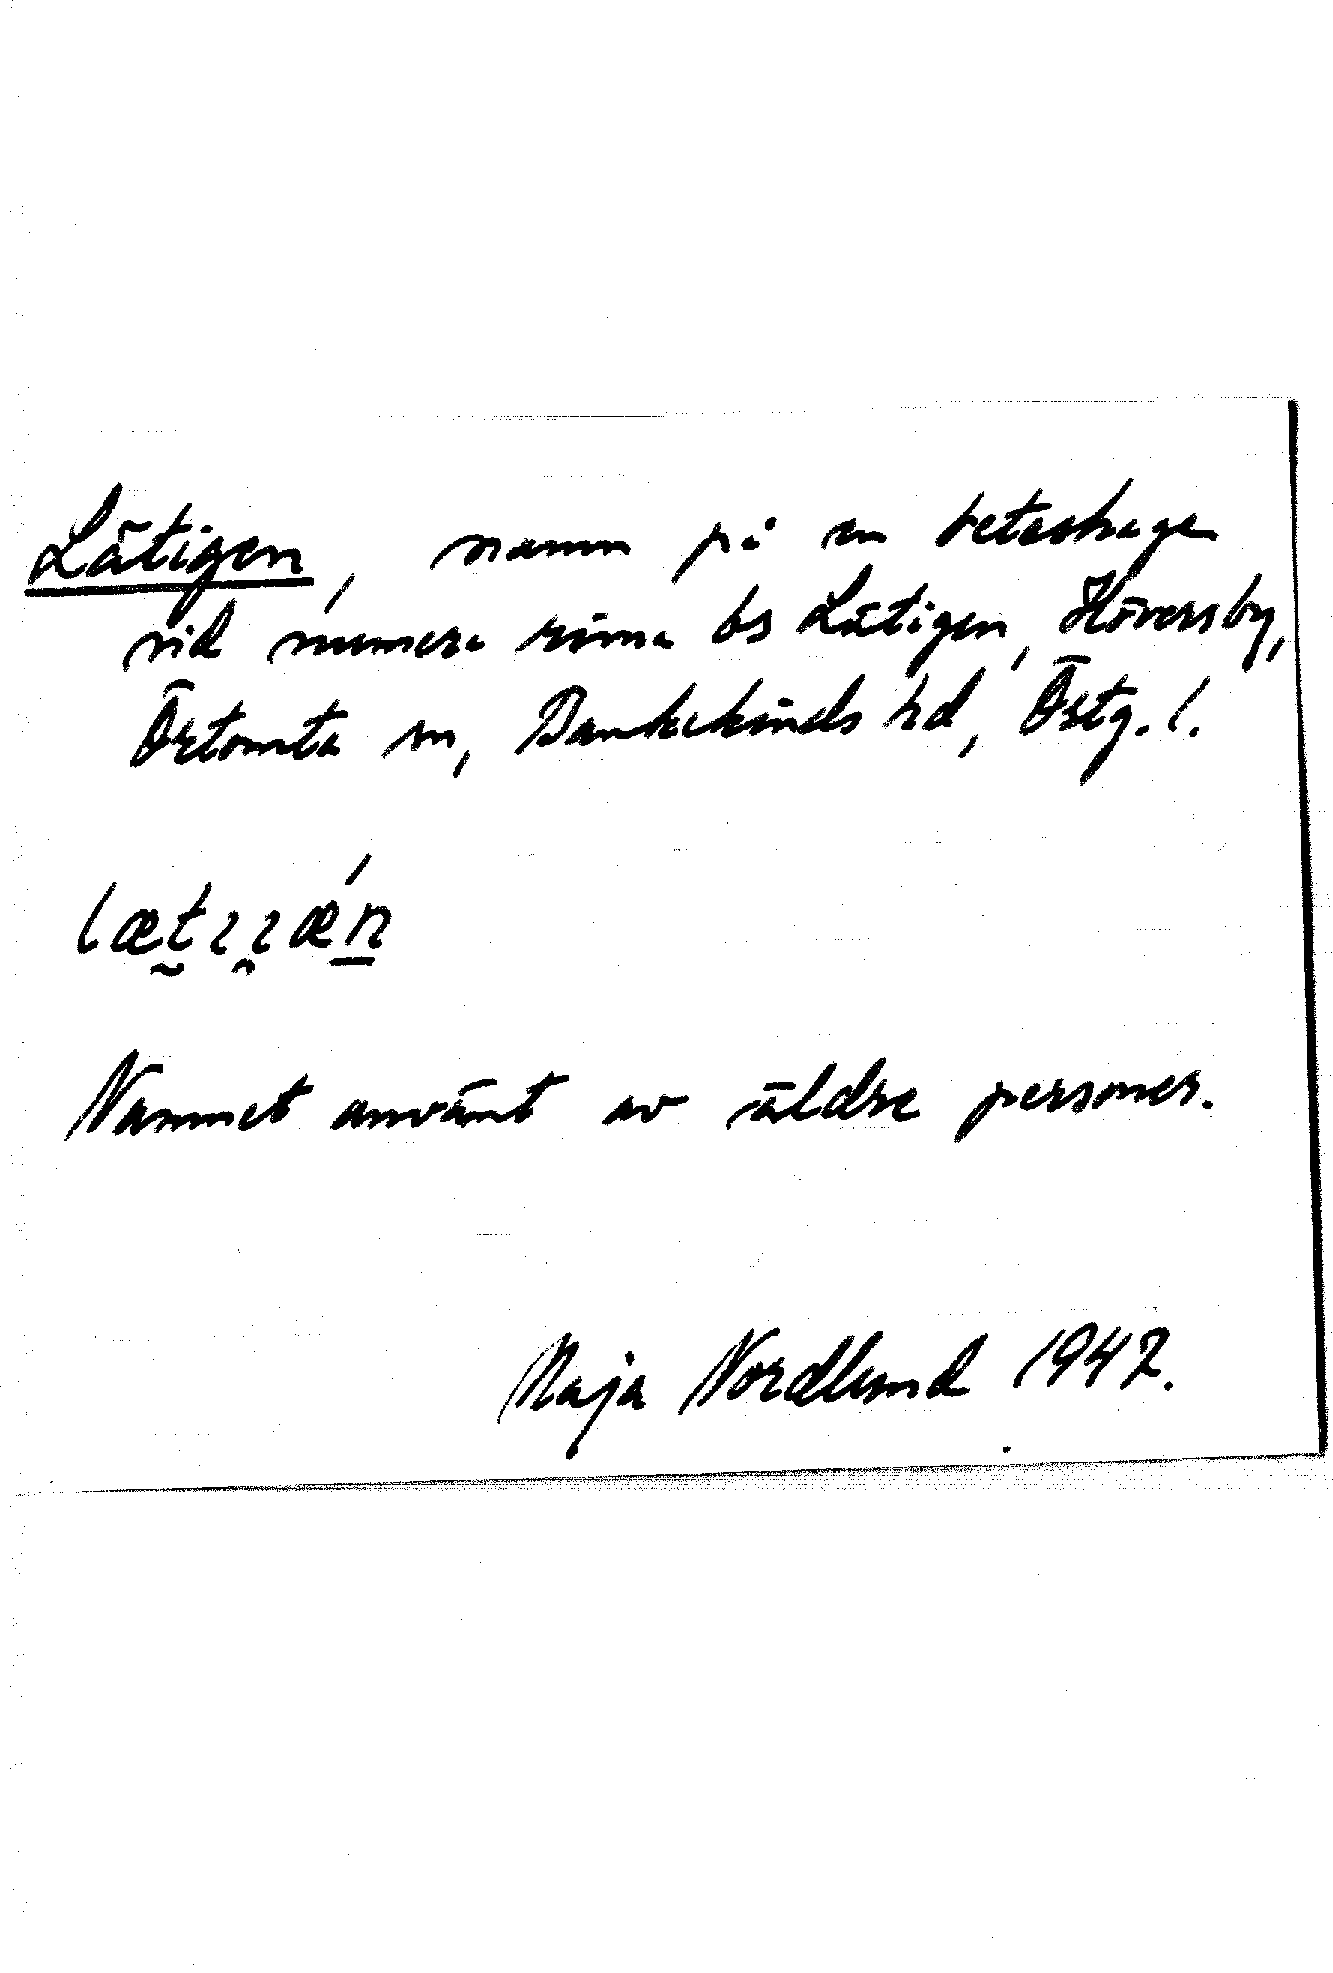 Lätigen, namn på en beteshage
vid numera rivna bs Lätigen, Höversby,
Örtomta sn, Bankekinds hd, Östg. l.
Namnet använt av äldre personer.
Maja Nordlund 1947.